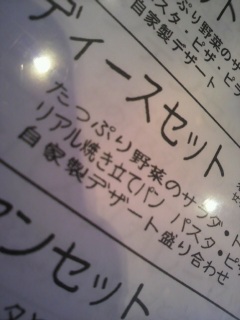 ット
ぷり野菜のサ
パスタ・ピザ・ピラ
自家製デザート
ディースセット
たっぷり野菜のサラダ・ド
リアル焼き立てパン パスタ・ピ
自家製デザート盛り合わせ
ンセット